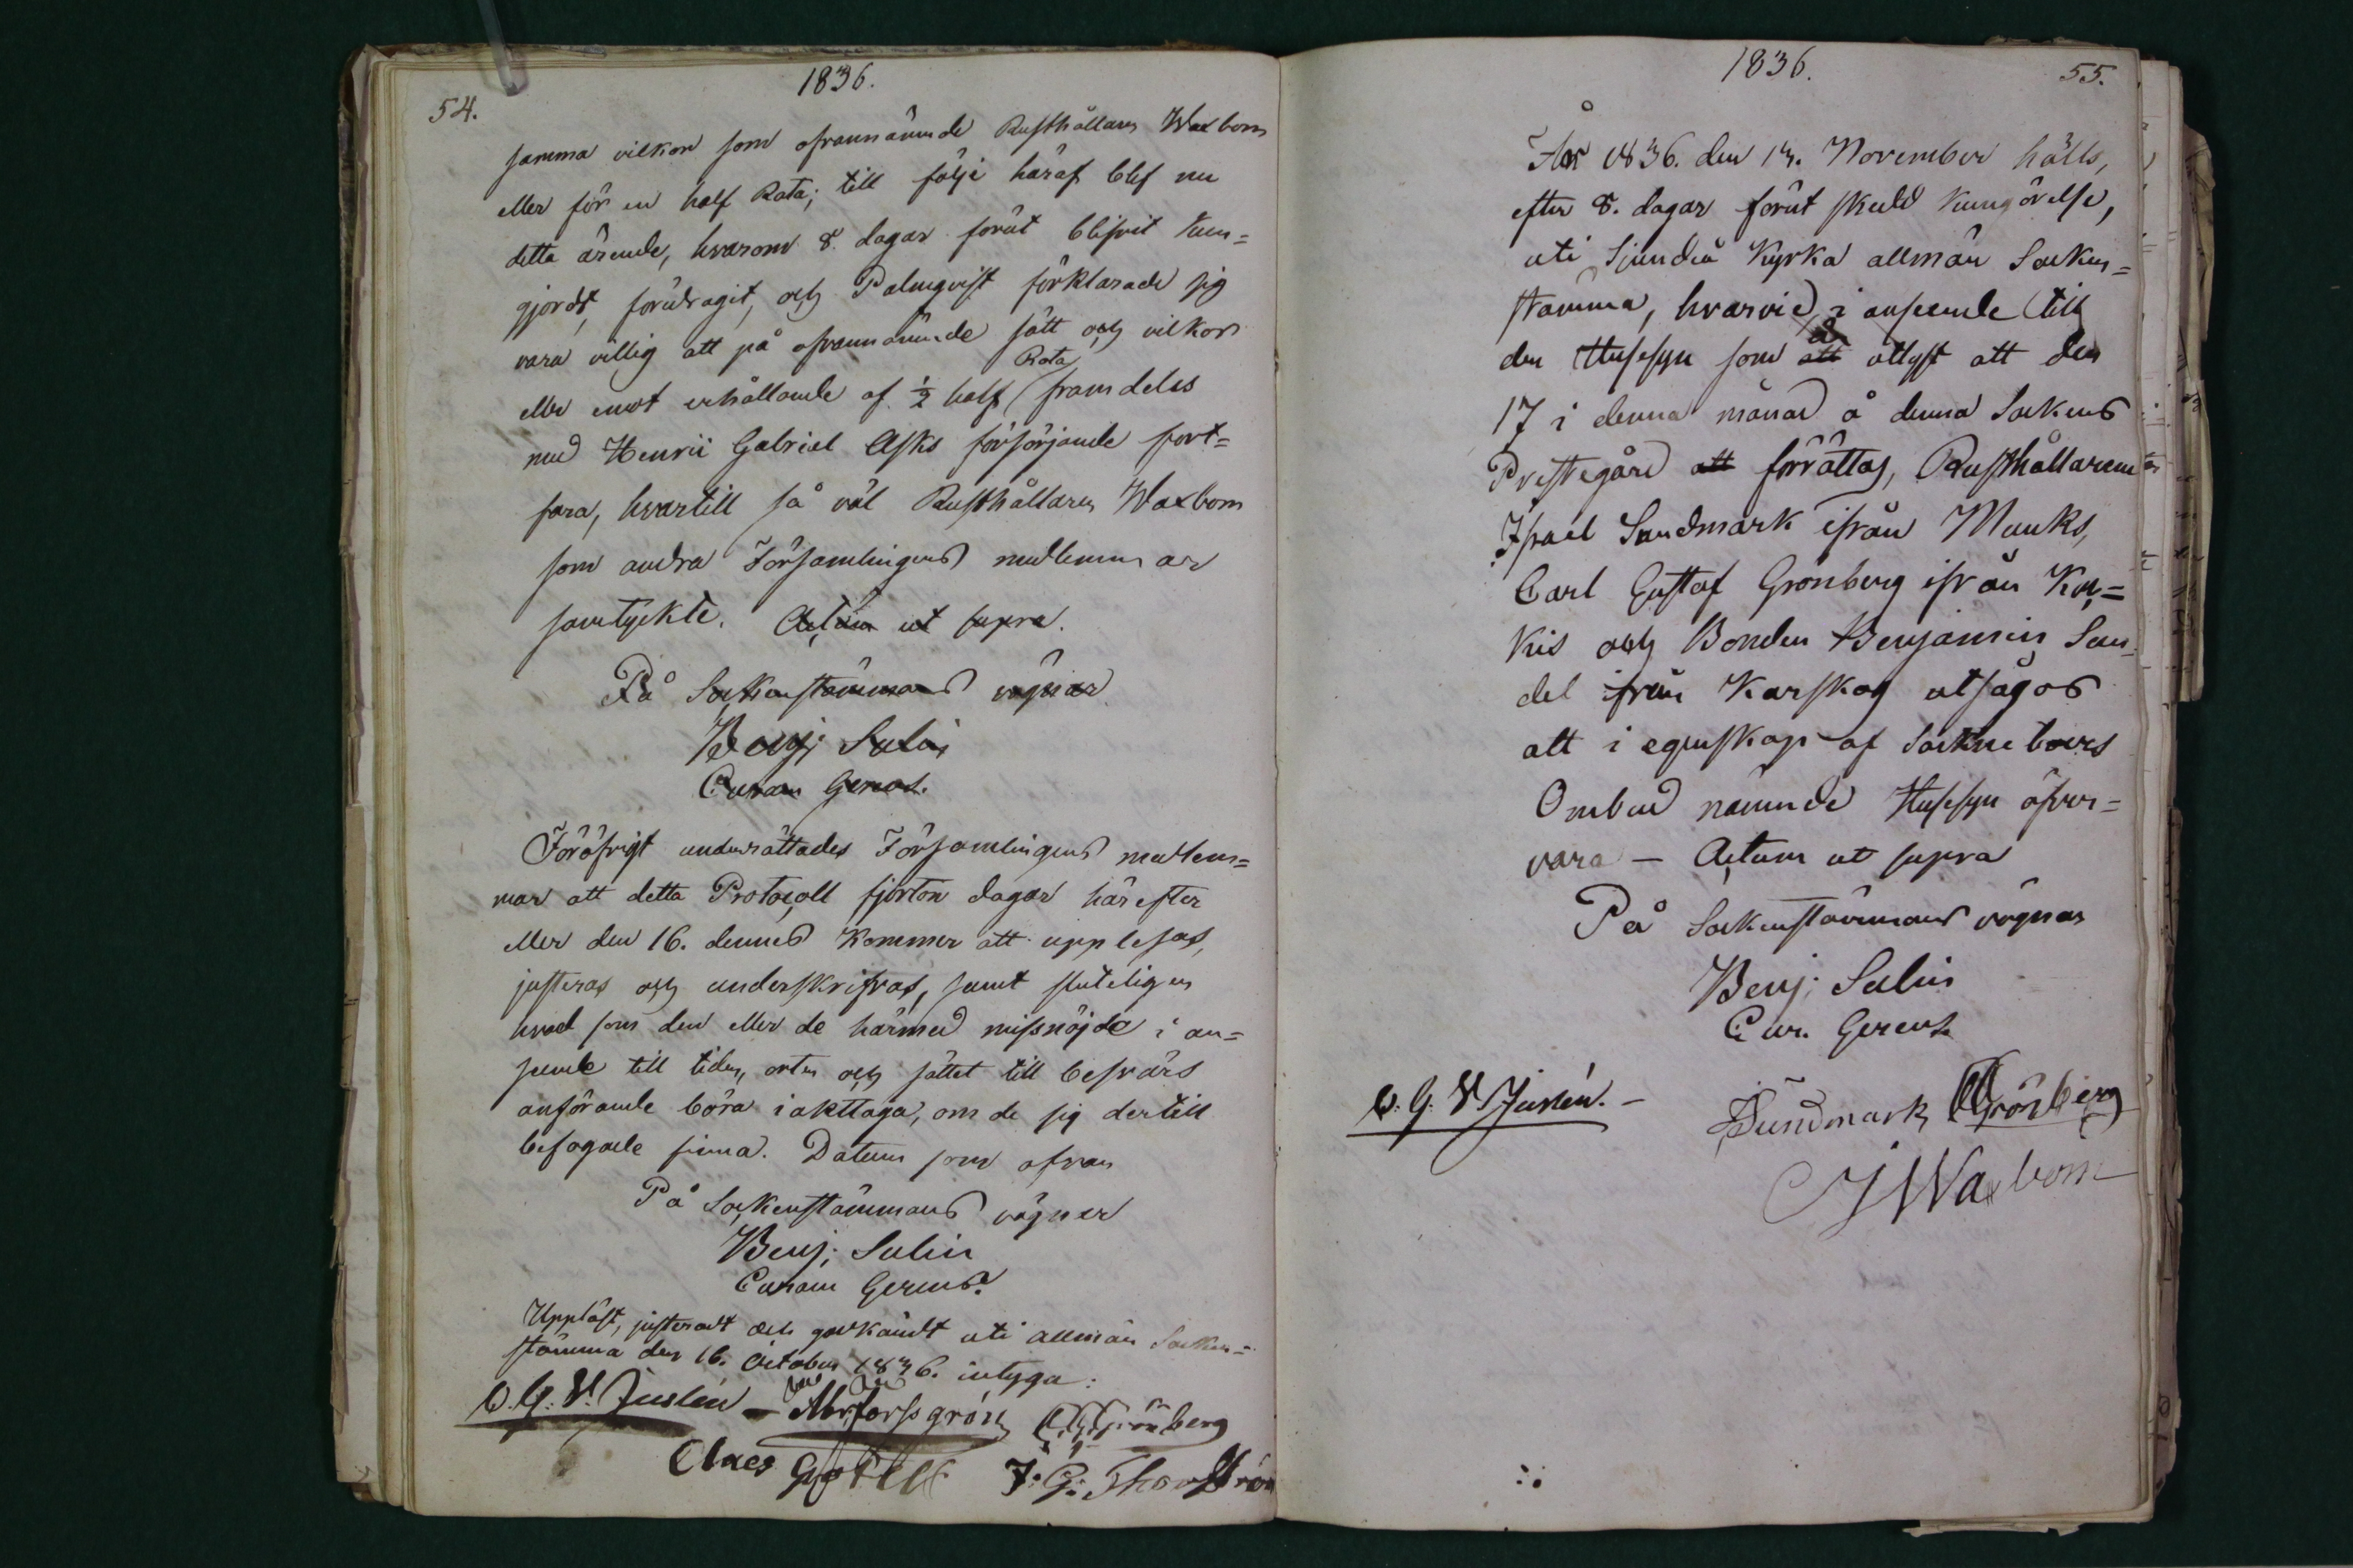 54.
1836.
samma vilkor som ofvannämnde Rusthållaren Waxbom
eller för en half Rota; till följe häraf blef nu
detta ärende, hvarom 8. dagar förut blifvit kun=
gjordt, föredragit, och Palmqvist förklarade sig
vara villig att på ofvannämnde sätt och vilkor
Rota
eller emot erhållande af 1/2 half framdeles
med Henric Gabriel Asks försörjande fort=
fara, hvartill så väl Rusthållaren Waxbom
som andra Församlingens medlemmar
samtyckte. Actum ut supra.
På Sockenstämmans vägnar
Benj: Salin
Curam Gerens.
Föröfrigt underrättades Församlingens medlem=
mar att detta Protocoll fjorton dagar härefter
eller den 16. dennes kommer att upplesas,
justeras och underskrifvas, samt sluteligen
hvad som den eller de härmed missnöjde i an=
seende till tiden, orten och sättet till besvärs
anförande böra iakttaga, om de sig dertill
befogade finna. Datum som ofvan
På Sockenstämmans vägnar
Benj: Salin
Curam Gerens.
Uppläst, justeradt och godkändt uti allmän Socken=
stämma den 16. October 1836. intyga:
C. G. V. Juslén — Abr: Forssgrén CGGrönberg
Claes J: G: Thorström
1836.
55.
År 1836. den 13. November hölls,
efter 8. dagar förut skedd kungörelse,
uti Sjundeå Kyrka allmän Socken=
stämma, hvarvid, i anseende till
är
den Husesyn som att utlyst att den
17 i denna månad å denna Sockens
Prestegård att förrättas, Rusthållarene
Israel Sundmark ifrån Munks,
Carl Gustaf Grönberg ifrån Ky=
kis och Bonden Benjamin Sun=
del ifrån Karskog utsågos
att i egenskap af Sockneboers
Ombud nämnde Husesyn öfver=
vara — Actum ut supra
På Sockenstämmans vägnar
Benj: Salin
Cur. Gerens
C. G. V. Juslén. —
JSundmark CGGrönberg
JWaxbom